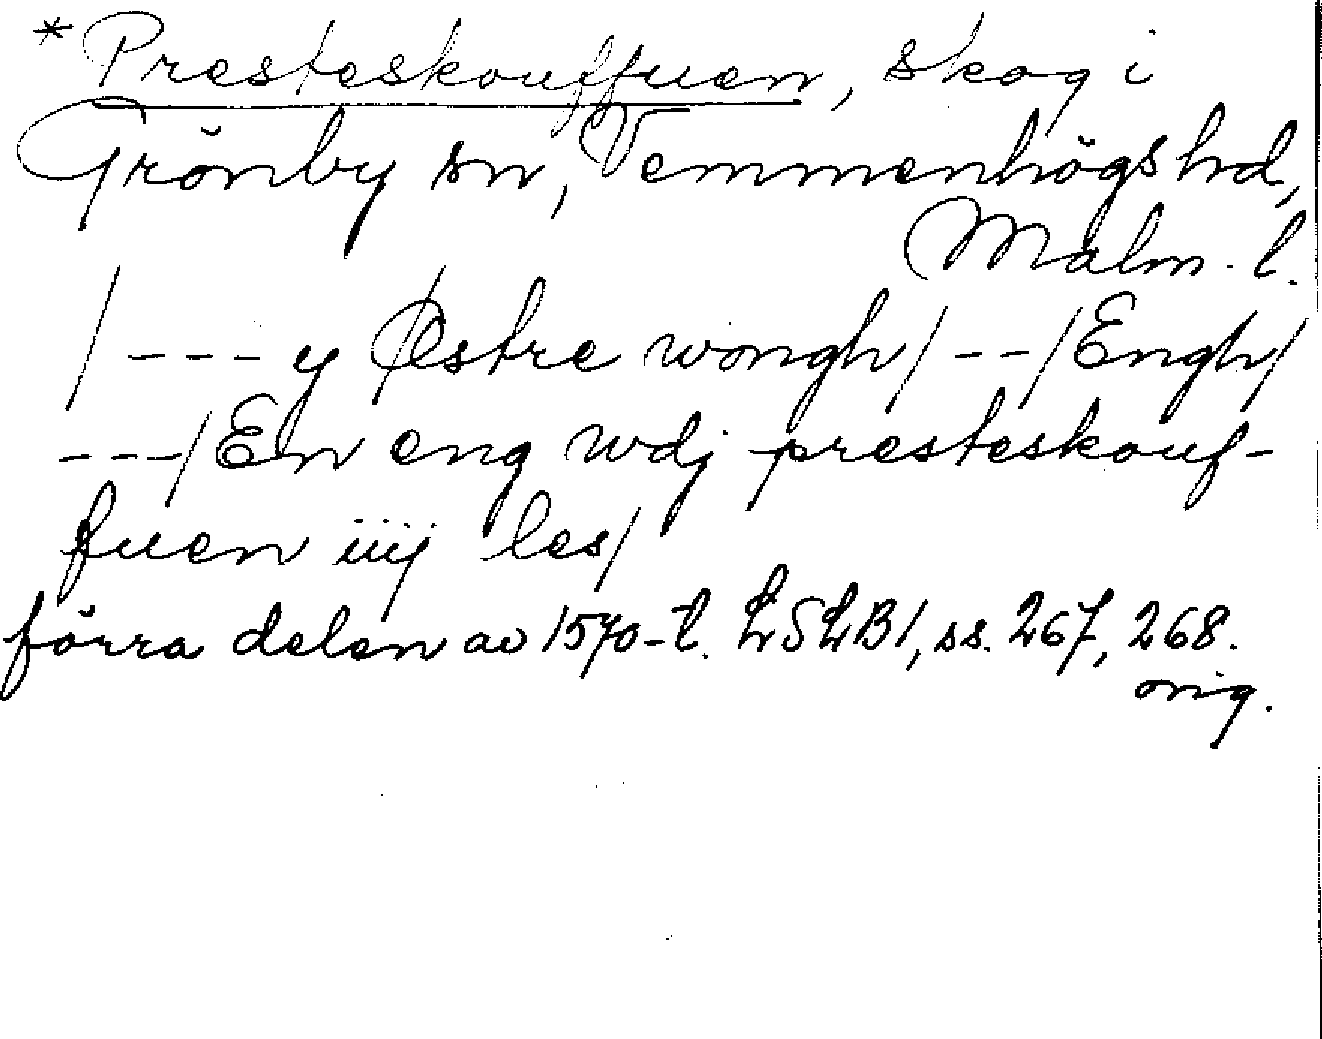 * Presteskouffuen, skog i
Grönby sn, Vemmenhögs hd,
Malm. l.
/ --- y Østre wongh / -- / Engh /
--- / En eng wdj presteskouf-
fuen iiij les /
förra delen av 1570-t. LSLB1, ss. 267, 268.
orig.